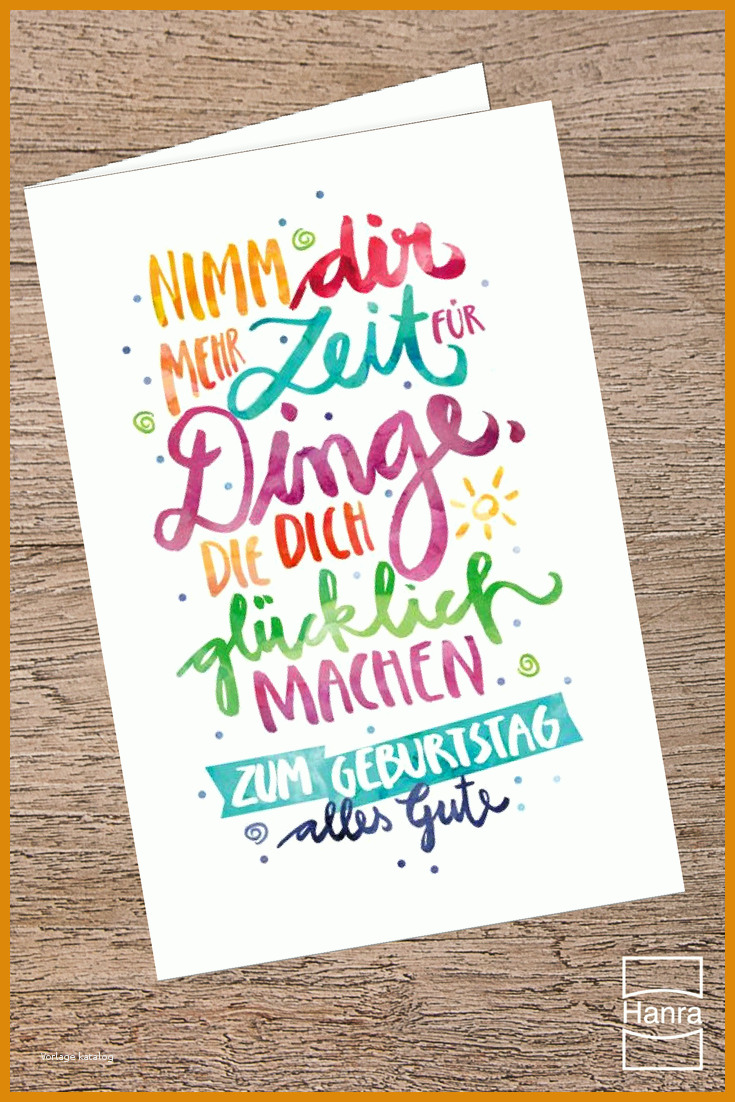 NIMM dir
MEHR Zeit FÜR
Dinge,
DIE DICH
glücklich
MACHEN
ZUM GEBURTSTAG
alles Gute
Hanra
Vorlage katalog